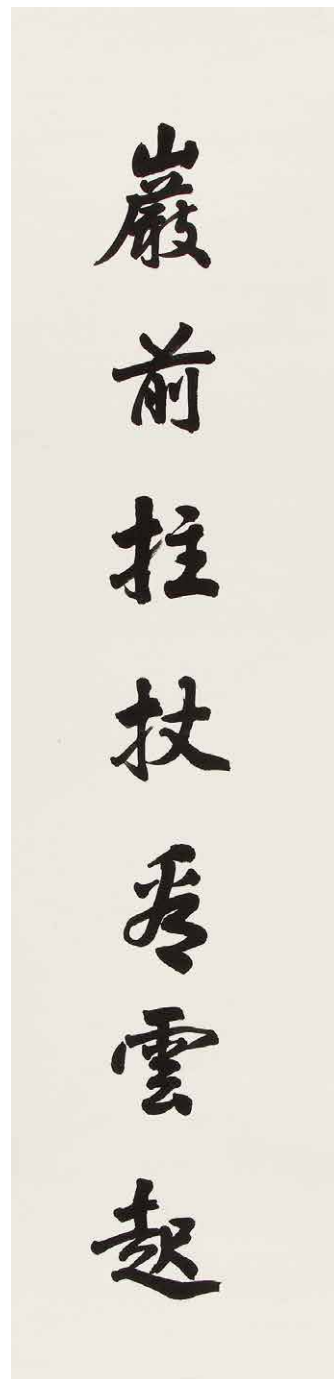 巖前拄杖看雲起